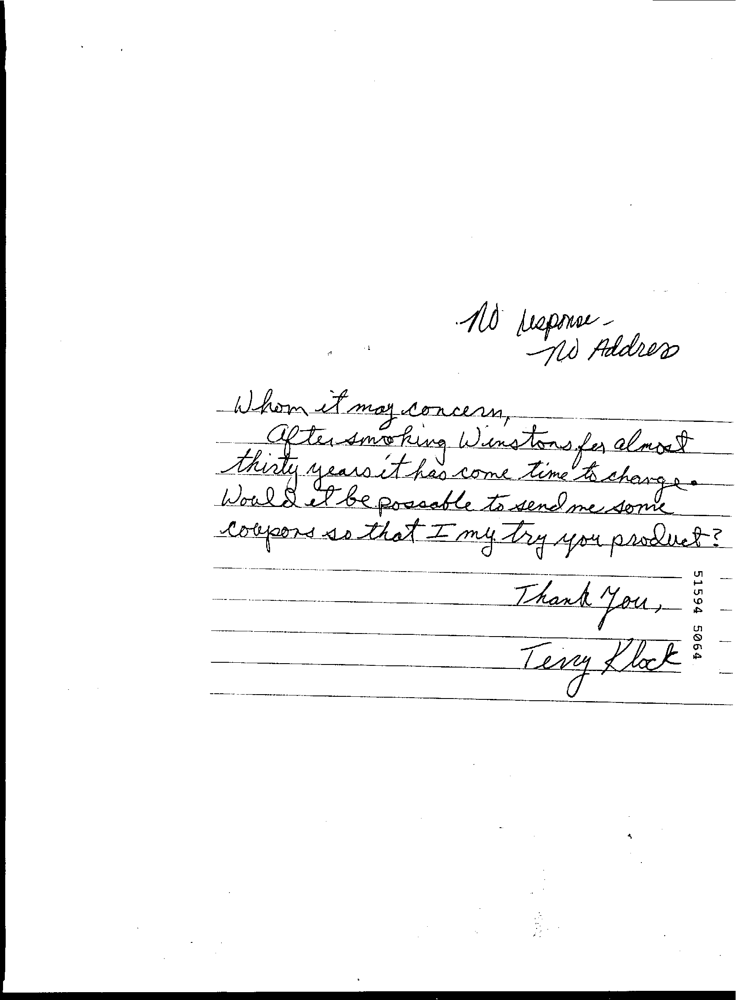 No response -
No Address
Whom it may concern,
After smoking Winstons for almost
thirty years it has come time to change.
Would it be possable to send me some
coupons so that I my try you product?
Thank You,
Terry Klock
51594 5064